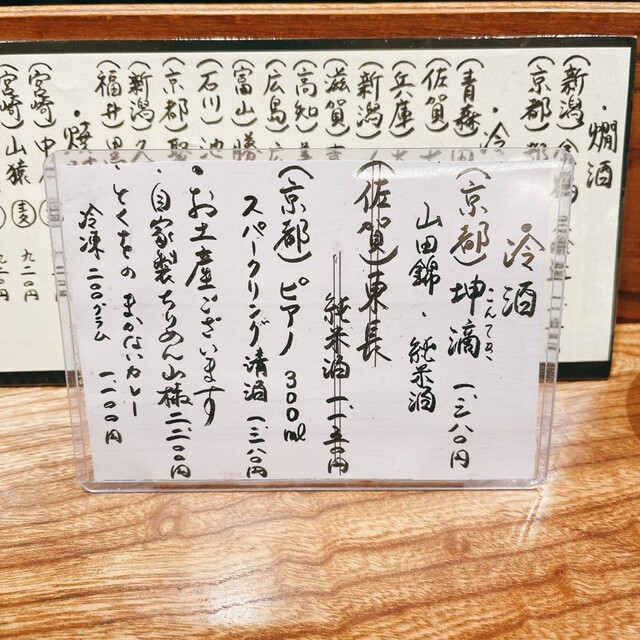 冷酒
(京都)坤滴 一、三八〇円
こんてき
山田錦、純米酒
(佐賀)東長
純米酒 一、一五〇円
(京都)ピアノ 300ml
スパークリング清酒 一、三八〇円
・お土産ございます
・自家製ちりめん山椒 二、二〇〇円
・とくをの まかないカレー
冷凍 二〇〇グラム 一、一〇〇円
・燗酒
(新潟)
(京都)
・冷
(青森)田
(佐賀)
(兵庫)
(新潟)
(滋賀)
(高知)
(広島)
(富山)勝
(石川)池
(京都)聚
(新潟)久
(福井)黒
(宮崎)中 九二〇円
(宮崎)山猿 麦 九二〇円